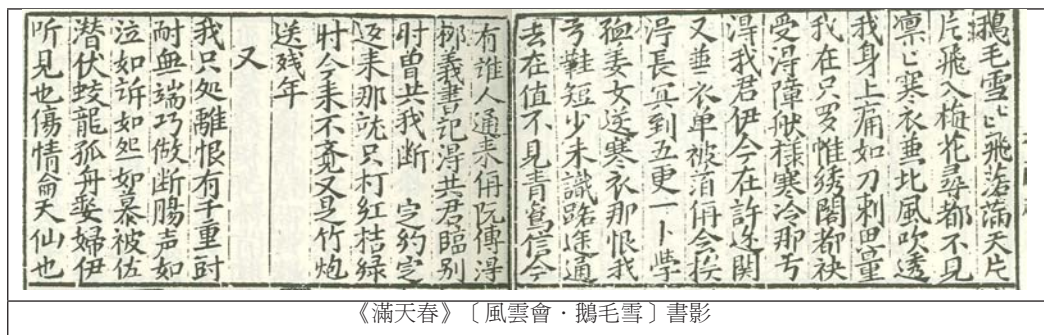 鵝毛雪〻飛落滿天片
片飛入梅花尋都不見
凛〻寒衣垂北風吹透
我身上痛如刀刺思量
我在只罗帷綉閣都袂
受淂障般様寒冷那亏
淂我君伊今在許边関
又垂衣单被薄倩会挨
淂長冥到五更一卜學
孤姜女送寒衣那恨我
亏鞋短少未識路途通
去在值不見青鸞信今
有誰人通来倩阮傳淂
柳義書記淂共君臨别
时曾共我断 定約定
返来那説只打紅桔緑
时今来不覚又是竹炮
送残年
又
我只处離恨有千重
耐無端巧做断腸声如
泣如訴如怨如慕被佐
潜伏蛟龍孤舟嫠婦伊
听見也傷情侖天仙也
《滿天春》〔風雲會．鵝毛雪〕書影